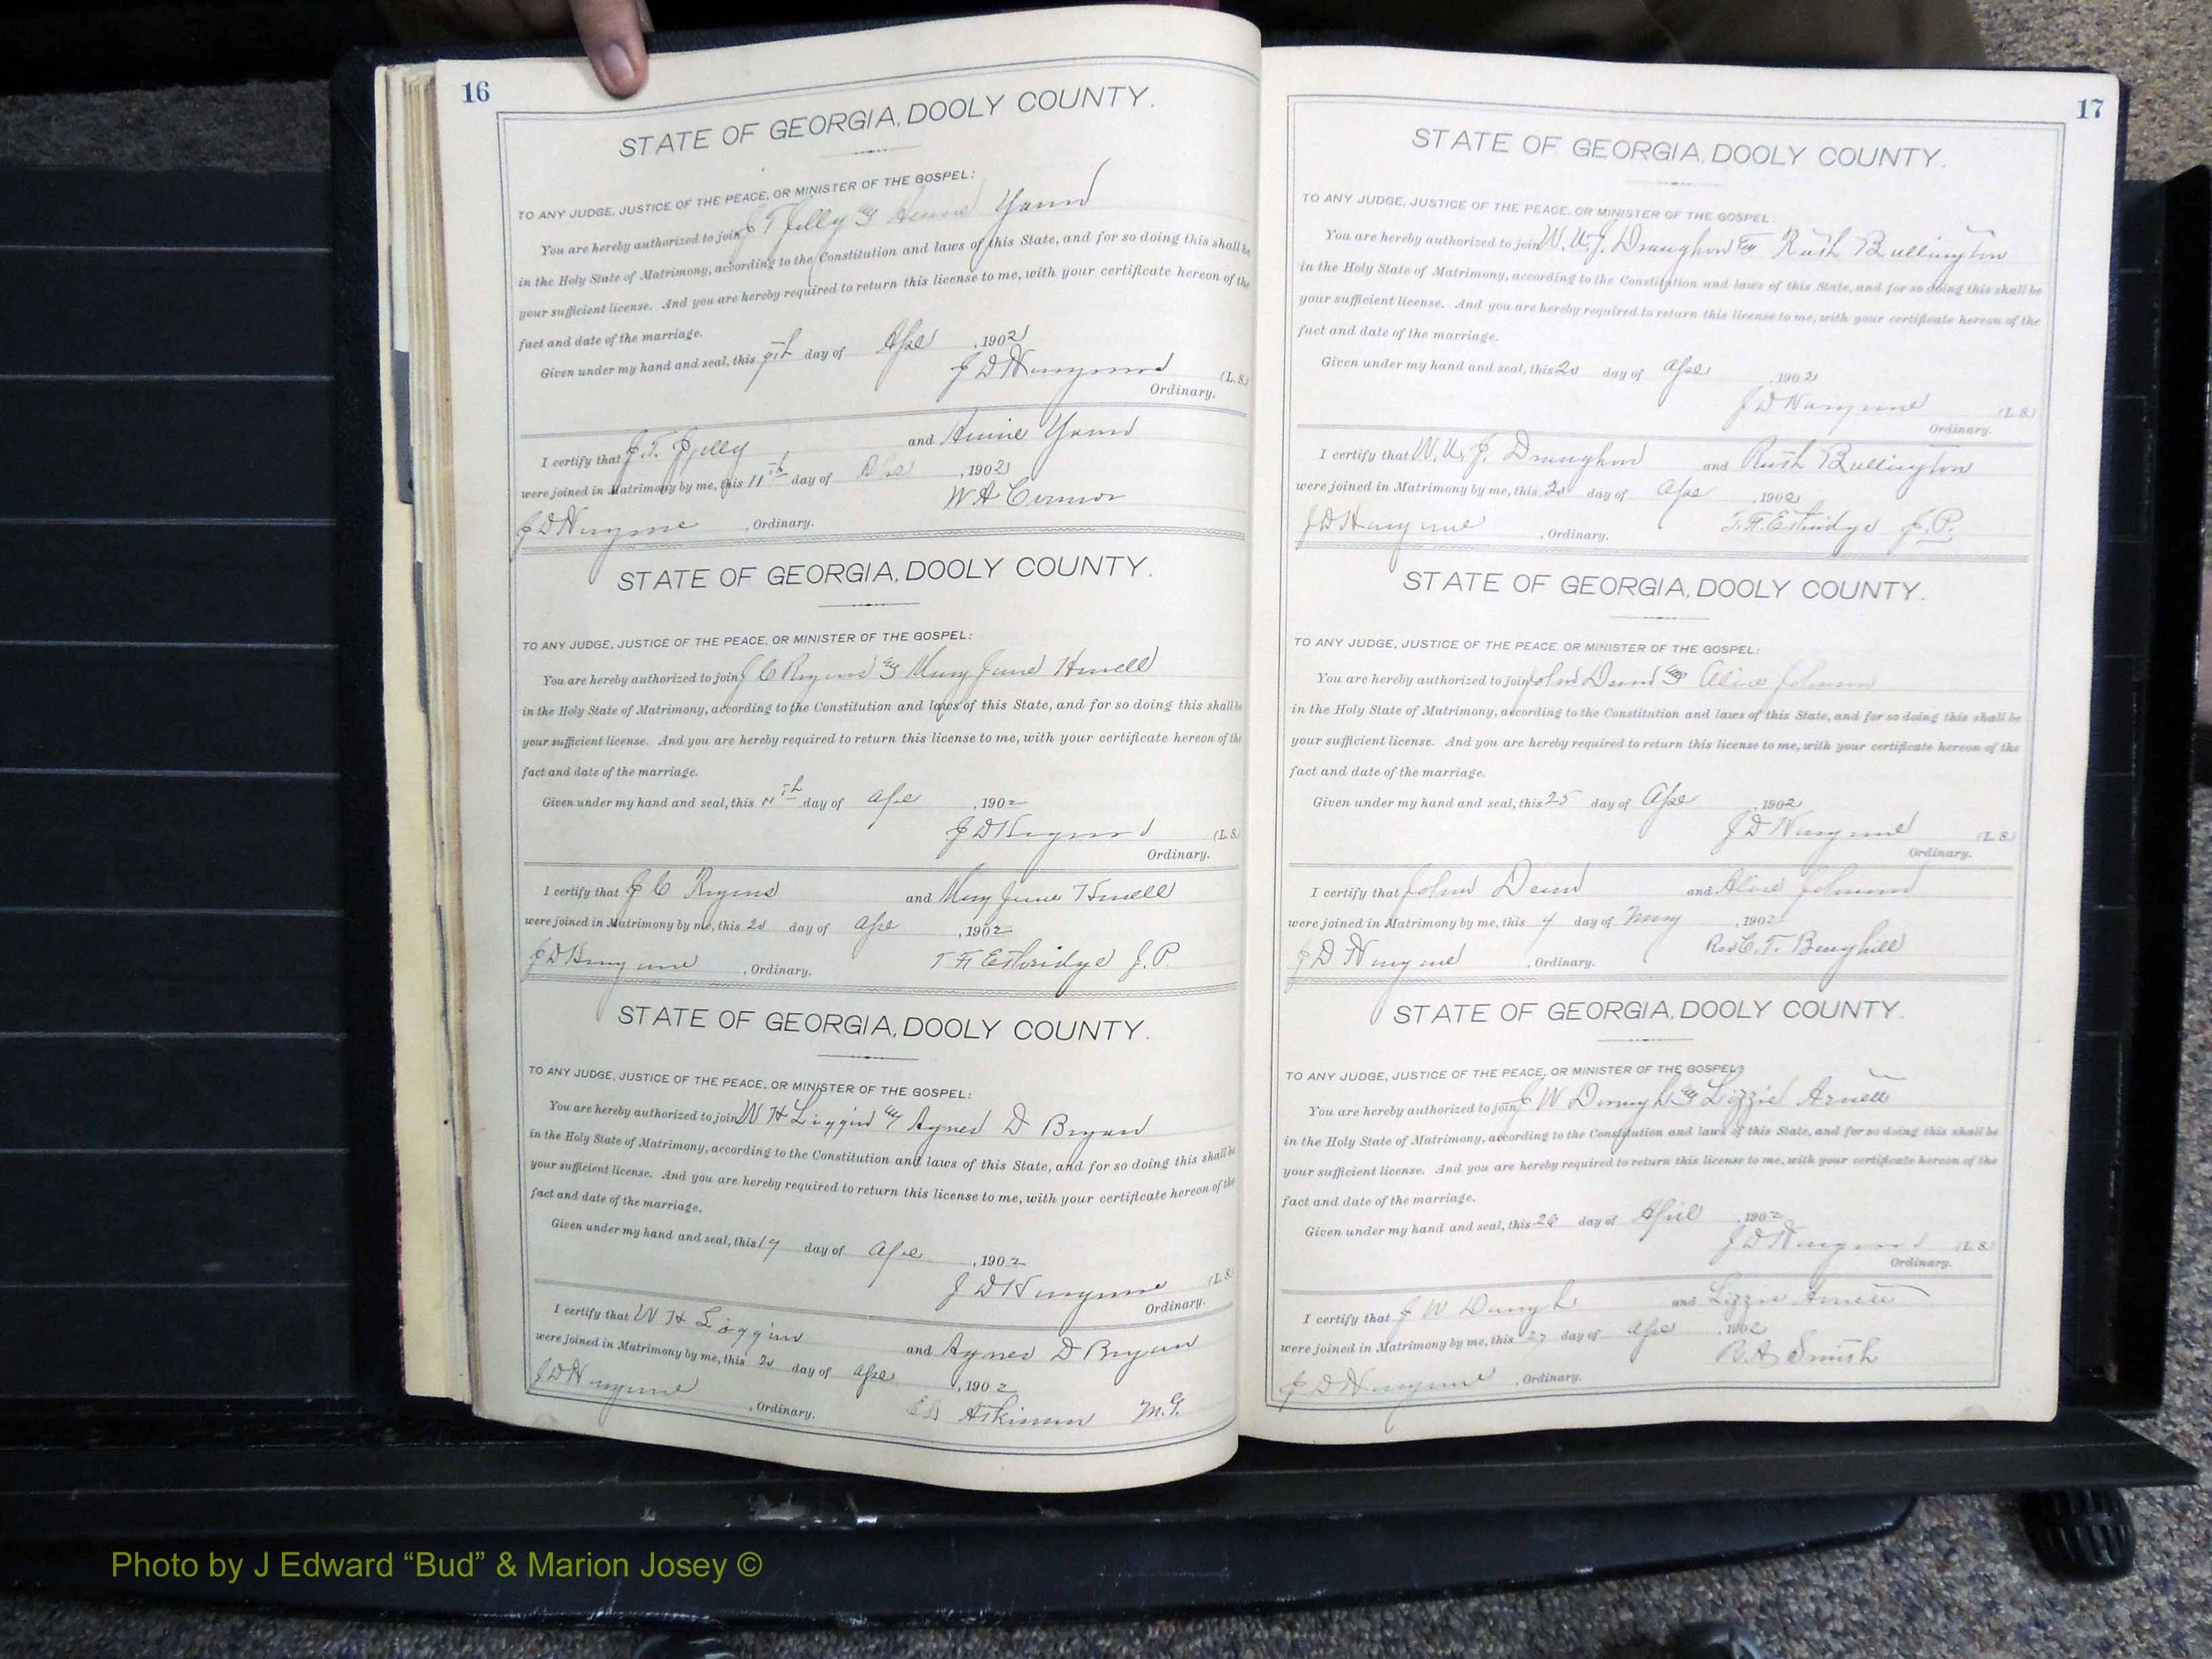 16
STATE OF GEORGIA, DOOLY COUNTY.
TO ANY JUDGE, JUSTICE OF THE PEACE, OR MINISTER OF THE GOSPEL:
You are hereby authorized to join J T Jelly & Annie
in the Holy State of Matrimony, according to the Constitution and laws of this State, and for so doing this shall be
your sufficient license. And you are hereby required to return this license to me, with your certificate hereon of the
fact and date of the marriage.
Given under my hand and seal, this 9th day of Apr, 1902
J D (L. S.)
Ordinary.
I certify that J. T. Jelly and Annie
were joined in Matrimony by me, this 11th day of Apr, 1902
W A Connor
J D, Ordinary.
STATE OF GEORGIA, DOOLY COUNTY.
TO ANY JUDGE, JUSTICE OF THE PEACE, OR MINISTER OF THE GOSPEL:
You are hereby authorized to join J C & Mary Jane Howell
in the Holy State of Matrimony, according to the Constitution and laws of this State, and for so doing this shall be
your sufficient license. And you are hereby required to return this license to me, with your certificate hereon of the
fact and date of the marriage.
Given under my hand and seal, this 11th day of Apr, 1902
J D (L. S.)
Ordinary.
I certify that J C and Mary Jane Howell
were joined in Matrimony by me, this 20 day of Apr, 1902
J D, Ordinary. T. F. Estridge J. P.
STATE OF GEORGIA, DOOLY COUNTY.
TO ANY JUDGE, JUSTICE OF THE PEACE, OR MINISTER OF THE GOSPEL:
You are hereby authorized to join W H Liggin & Agnes D Bryan
in the Holy State of Matrimony, according to the Constitution and laws of this State, and for so doing this shall be
your sufficient license. And you are hereby required to return this license to me, with your certificate hereon of the
fact and date of the marriage.
Given under my hand and seal, this 19 day of Apr, 1902
J D (L. S.)
Ordinary.
I certify that W H Liggin and Agnes D Bryan
were joined in Matrimony by me, this 20 day of Apr, 1902
J D, Ordinary. Askinson M. G.
17
STATE OF GEORGIA, DOOLY COUNTY.
TO ANY JUDGE, JUSTICE OF THE PEACE, OR MINISTER OF THE GOSPEL:
You are hereby authorized to join W. U. J. Draughon & Ruth Bullington
in the Holy State of Matrimony, according to the Constitution and laws of this State, and for so doing this shall be
your sufficient license. And you are hereby required to return this license to me, with your certificate hereon of the
fact and date of the marriage.
Given under my hand and seal, this 20 day of Apr, 1902
J D (L. S.)
Ordinary.
I certify that W. U. J. Draughon and Ruth Bullington
were joined in Matrimony by me, this 20 day of Apr, 1902
J D, Ordinary. T. F. Estridge J. P.
STATE OF GEORGIA, DOOLY COUNTY.
TO ANY JUDGE, JUSTICE OF THE PEACE, OR MINISTER OF THE GOSPEL:
You are hereby authorized to join John Dean & Alice Johnson
in the Holy State of Matrimony, according to the Constitution and laws of this State, and for so doing this shall be
your sufficient license. And you are hereby required to return this license to me, with your certificate hereon of the
fact and date of the marriage.
Given under my hand and seal, this 25 day of Apr, 1902
J D (L. S.)
Ordinary.
I certify that John Dean and Alice Johnson
were joined in Matrimony by me, this 4 day of May, 1902
J D, Ordinary. Rev C. T.
STATE OF GEORGIA, DOOLY COUNTY.
TO ANY JUDGE, JUSTICE OF THE PEACE, OR MINISTER OF THE GOSPEL:
You are hereby authorized to join J W & Lizzie Arnett
in the Holy State of Matrimony, according to the Constitution and laws of this State, and for so doing this shall be
your sufficient license. And you are hereby required to return this license to me, with your certificate hereon of the
fact and date of the marriage.
Given under my hand and seal, this 26 day of April, 1902
J D (L. S.)
Ordinary.
I certify that J W and Lizzie Arnett
were joined in Matrimony by me, this 27 day of Apr, 1902
R A Smith
J D, Ordinary.
Photo by J Edward “Bud” & Marion Josey ©